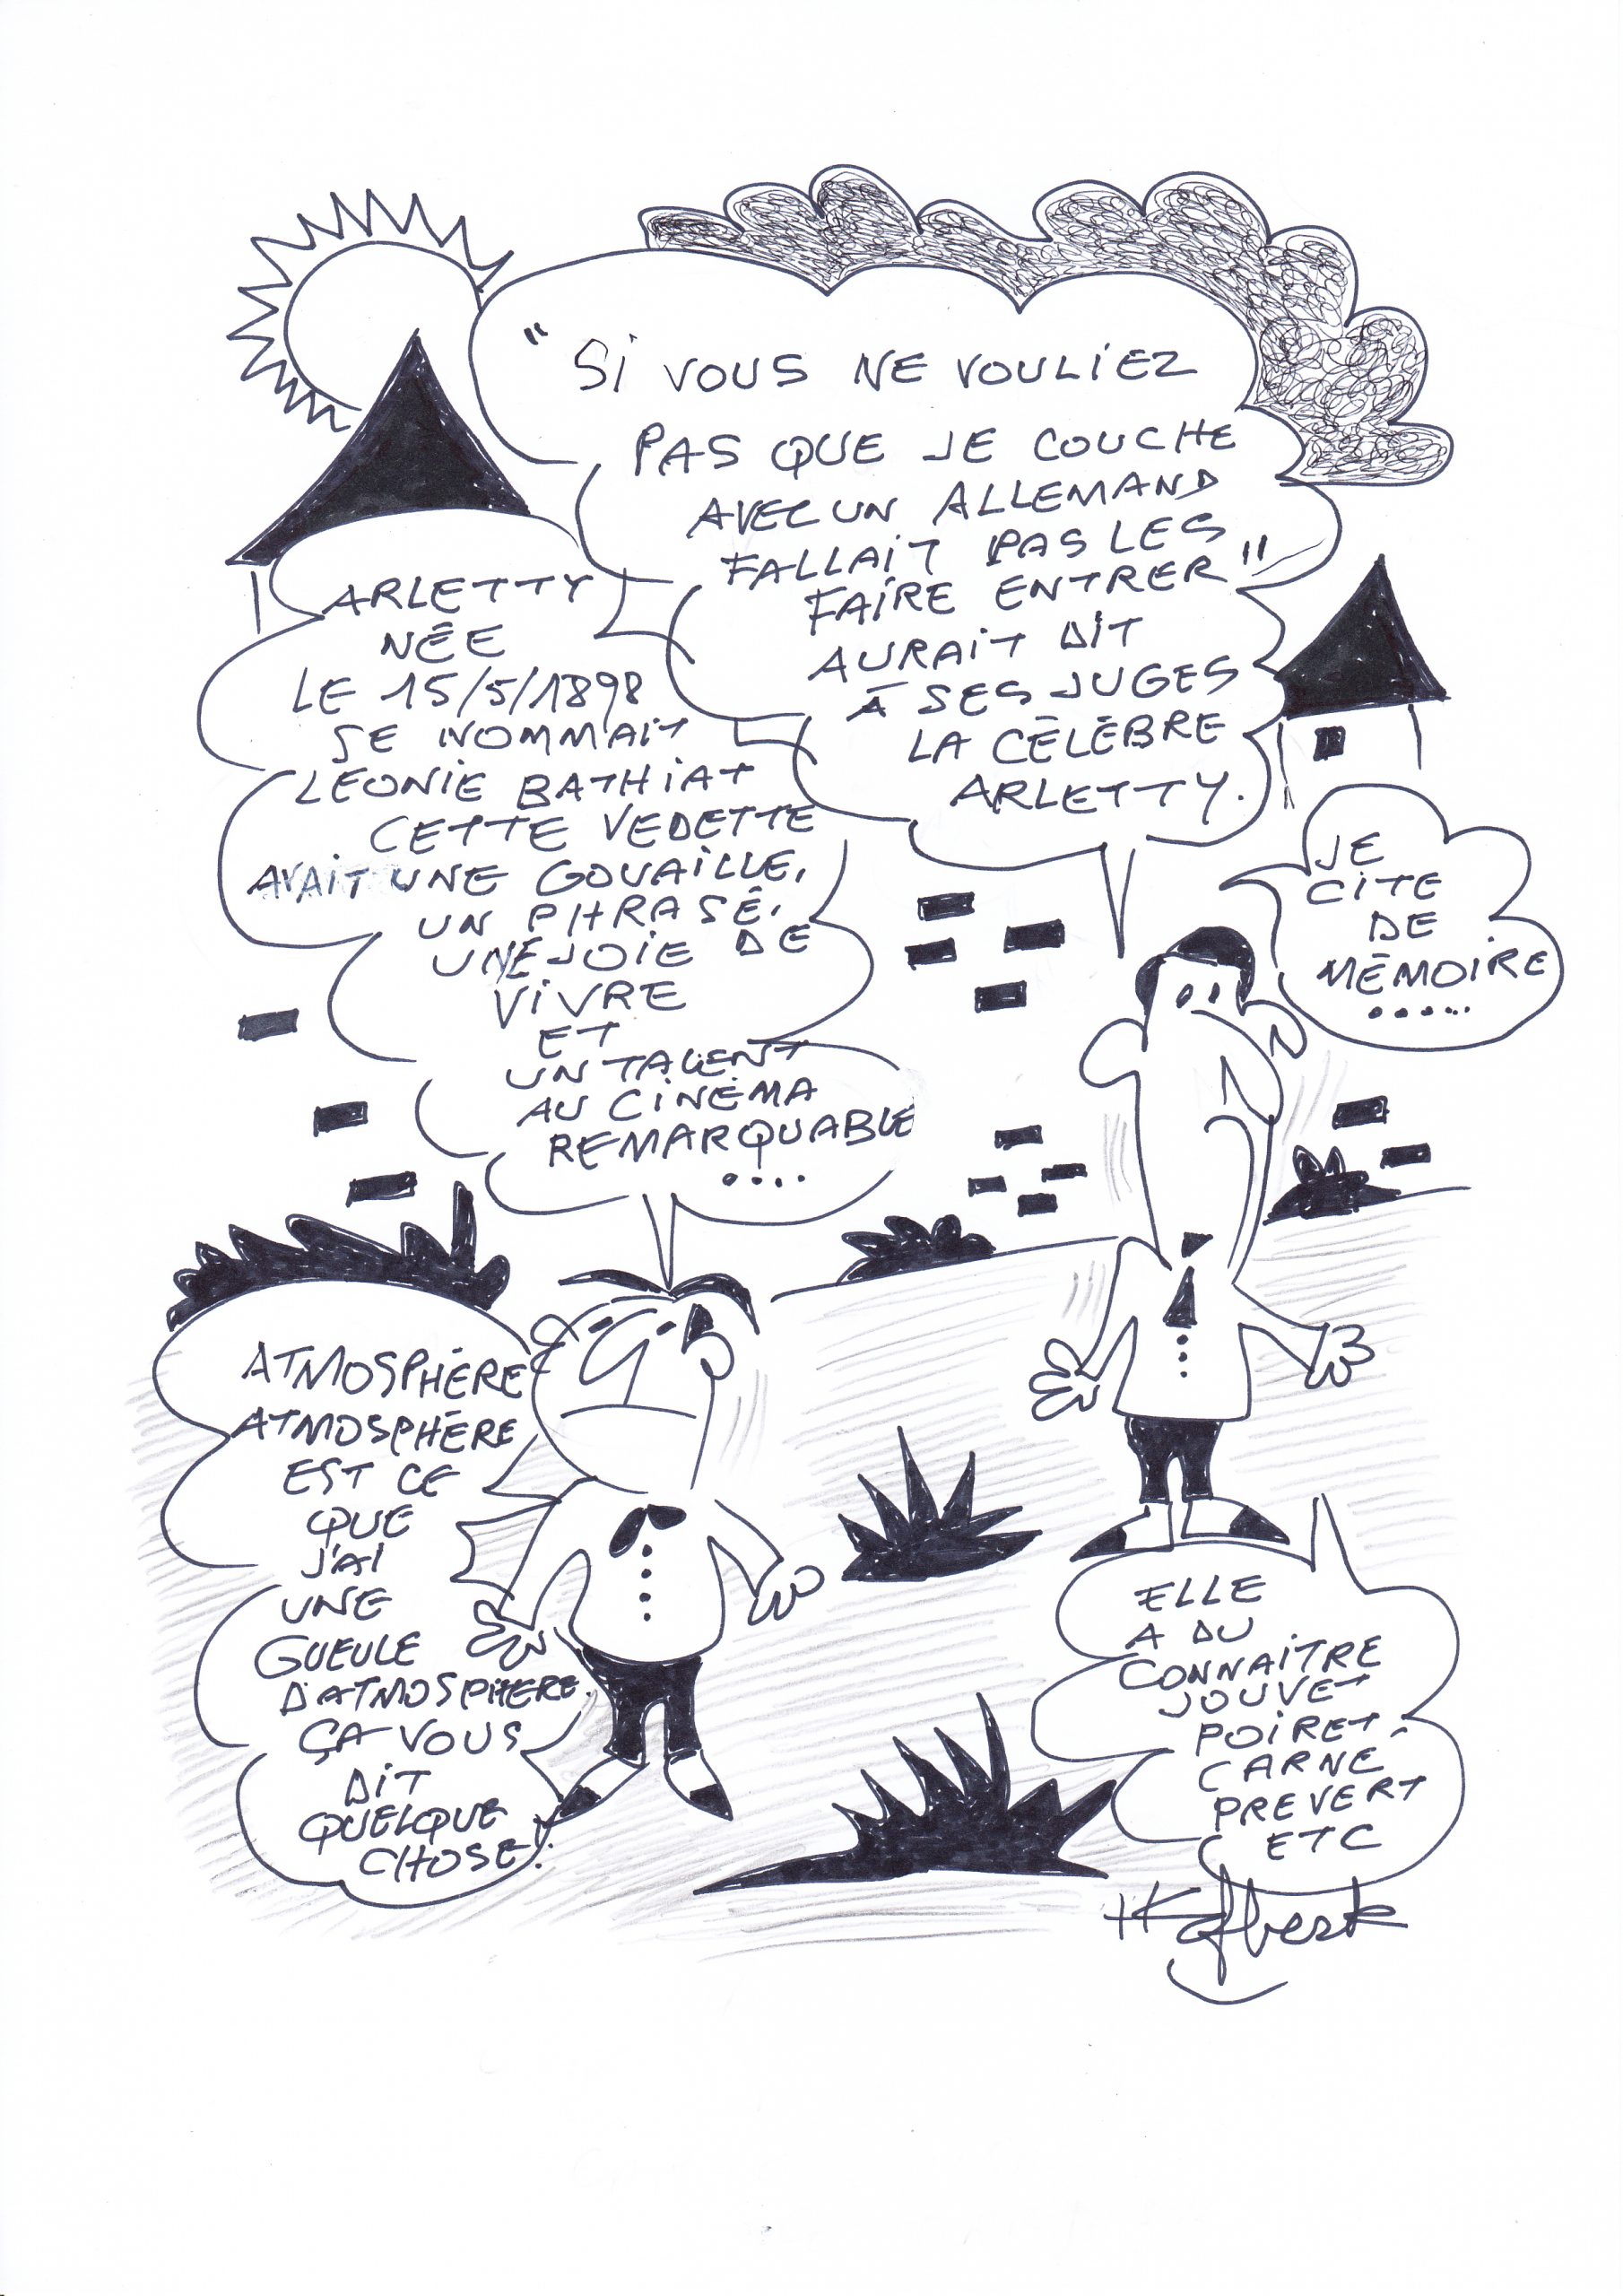 "SI VOUS NE VOULIEZ
PAS QUE JE COUCHE
AVEC UN ALLEMAND
FALLAIT PAS LES
FAIRE ENTRER"
AURAIT DIT
À SES JUGES
LA CÉLÈBRE
ARLETTY.
JE
CITE
DE
MÉMOIRE
.....
ARLETTY
NÉE
LE 15/5/1898
SE NOMMAIT
LEONIE BATHIAT
CETTE VEDETTE
AVAIT UNE GOUAILLE,
UN PHRASÉ,
UNE JOIE DE
VIVRE
ET
UN TALENT
AU CINÉMA
REMARQUABLE
....
ATMOSPHÈRE
ATMOSPHÈRE
EST CE
QUE
J'AI
UNE
GUEULE
D'ATMOSPHERE.
ÇA VOUS
DIT
QUELQUE
CHOSE!
ELLE
A DU
CONNAITRE
JOUVET
POIRET
CARNÉ
PREVERT
ETC